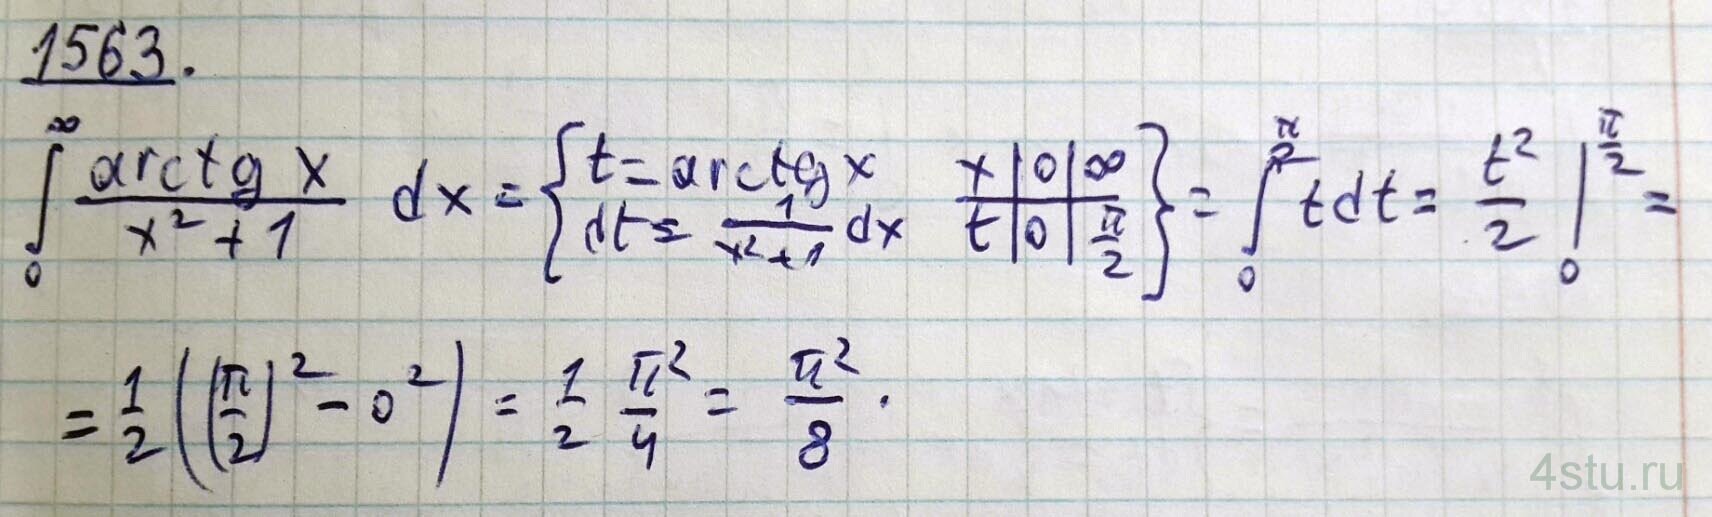 1563.
∫₀^∞ arctg x / (x² + 1) dx = { t = arctg x, dt = 1/(x² + 1) dx, x | 0 | ∞, t | 0 | π/2 } = ∫₀^(π/2) t dt = t²/2 |₀^(π/2) =
= 1/2 ((π/2)² - 0²) = 1/2 π²/4 = π²/8.
4stu.ru